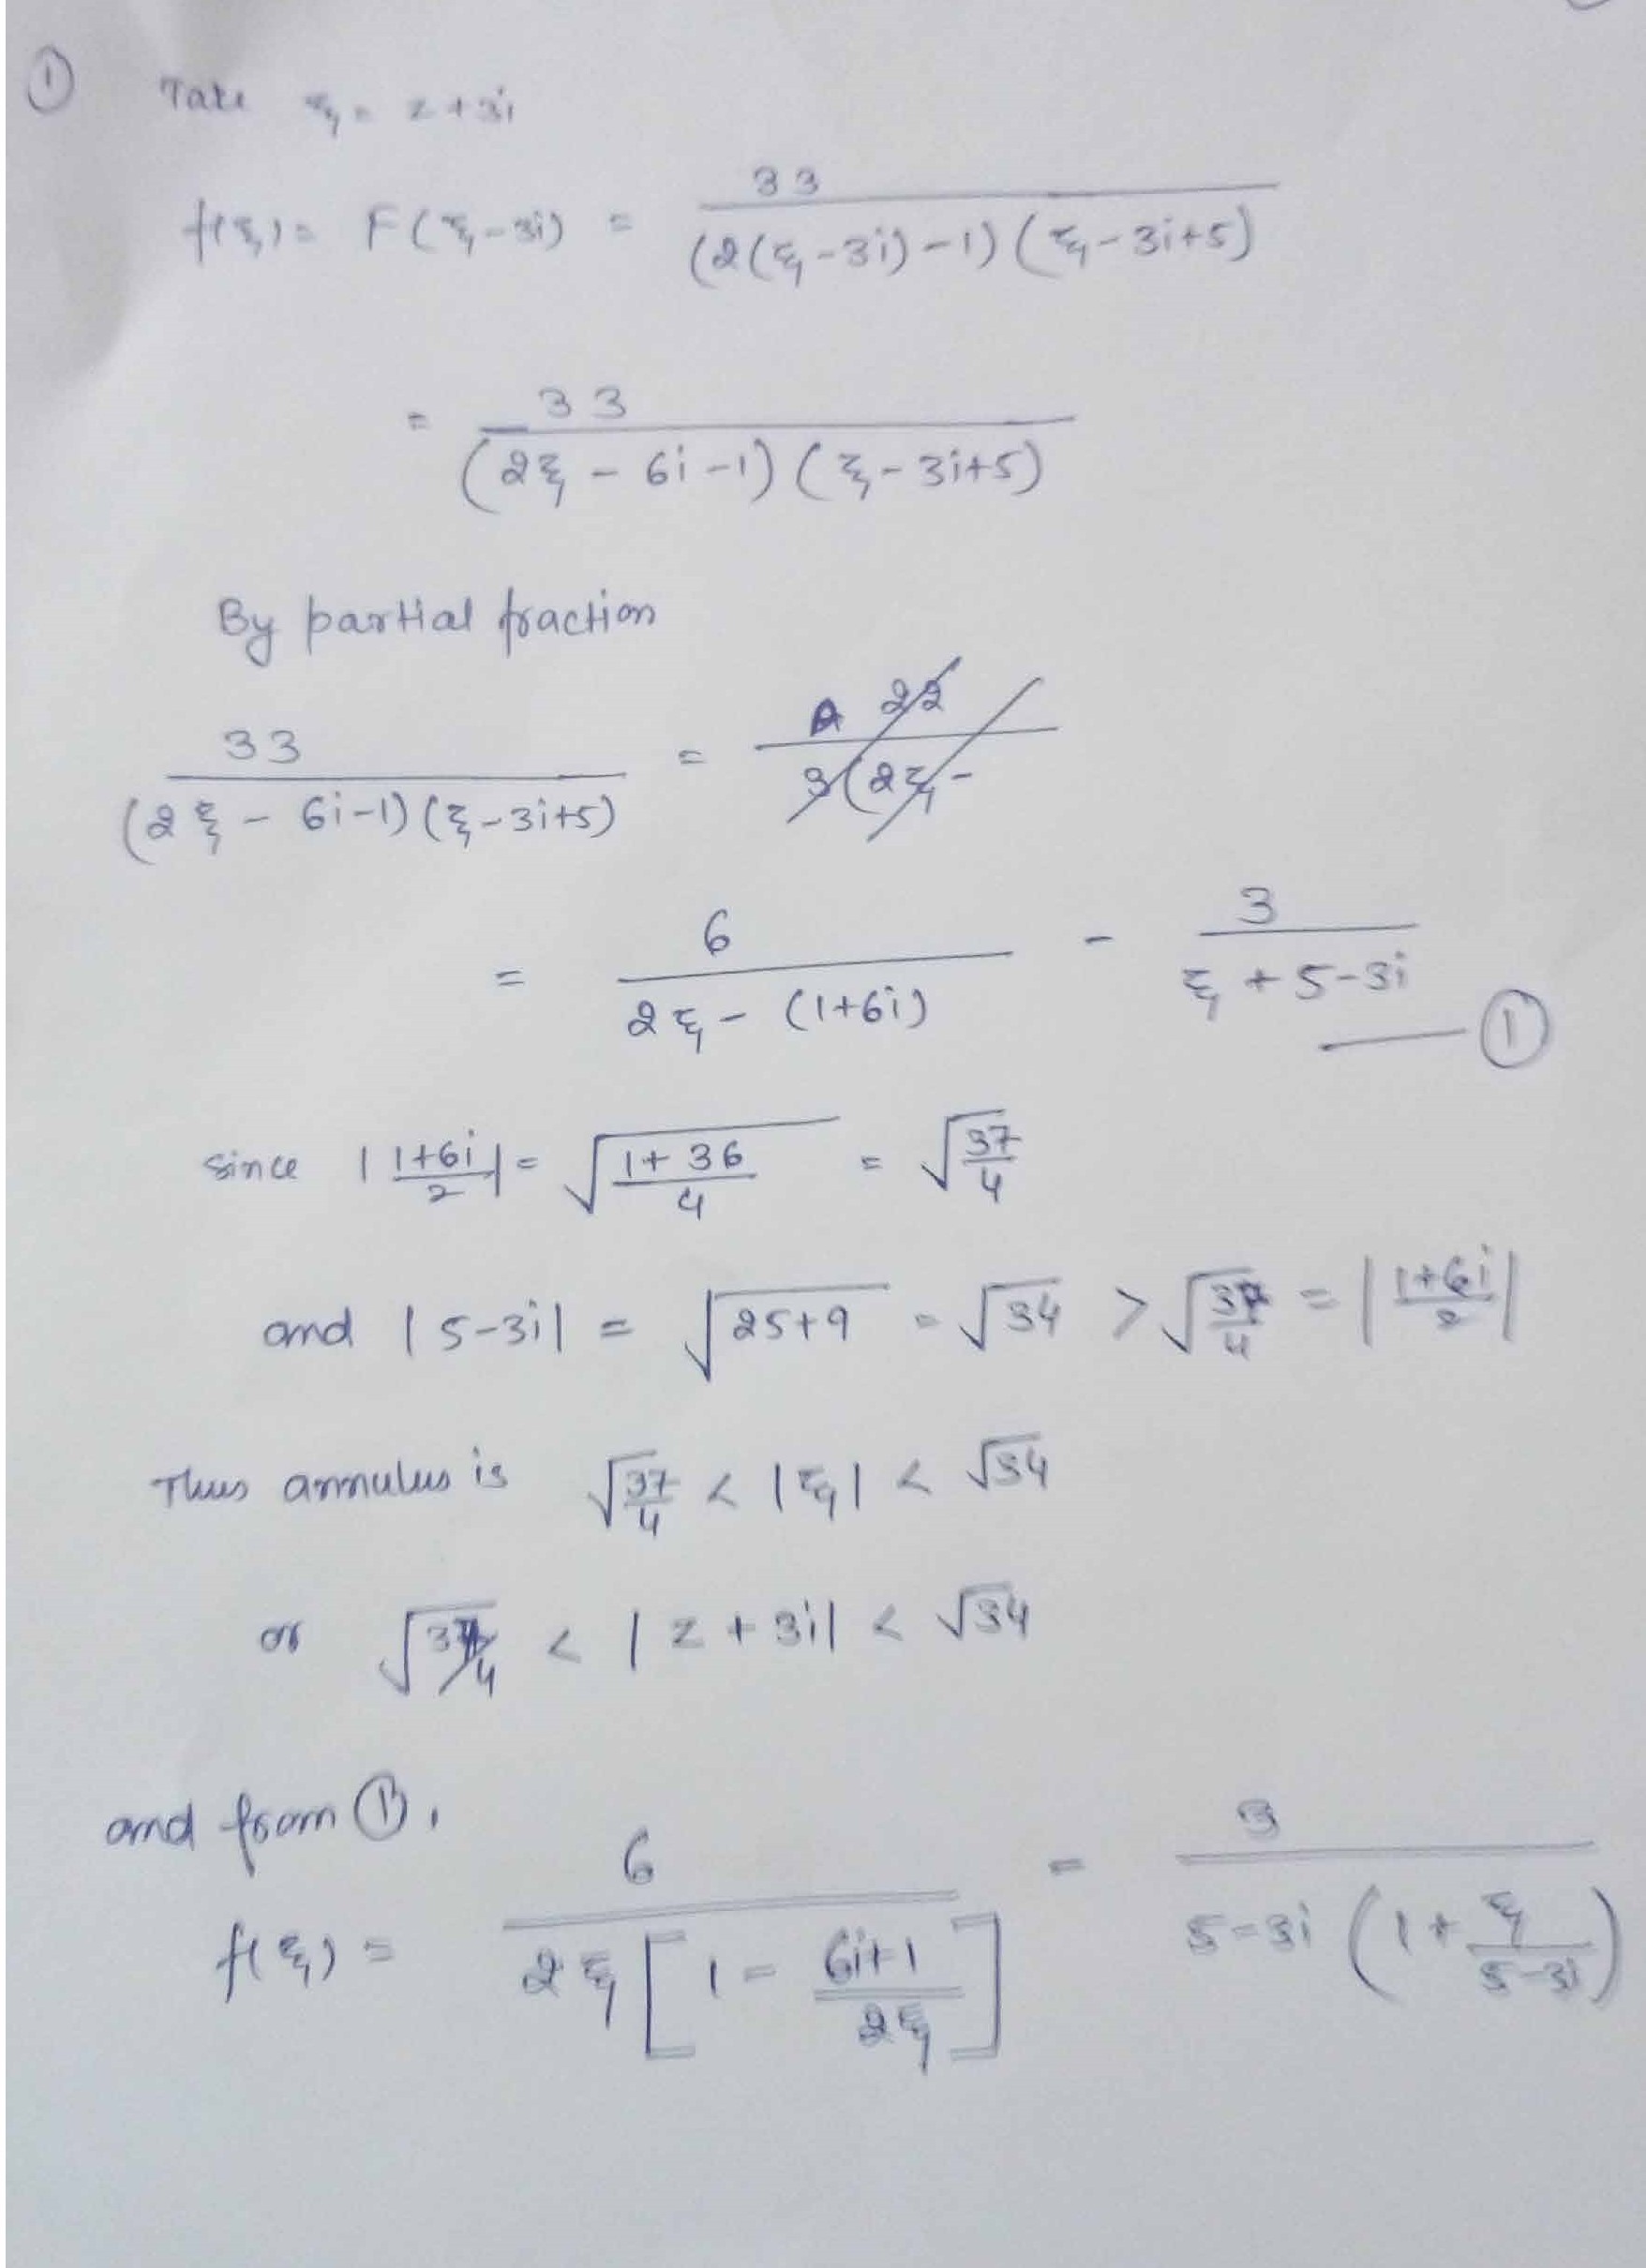 ① Take ξ = z + 3i
f(ξ) = F(ξ - 3i) = 33 / (2(ξ - 3i) - 1) (ξ - 3i + 5)
= 33 / (2ξ - 6i - 1) (ξ - 3i + 5)
By partial fraction
33 / (2ξ - 6i - 1) (ξ - 3i + 5) = A 22 / 3(2ξ -
= 6 / 2ξ - (1 + 6i) - 3 / ξ + 5 - 3i —— ①
since |1+6i / 2| = √(1 + 36 / 4) = √(37/4)
and |5 - 3i| = √(25 + 9) = √34 > √(37/4) = |1+6i / 2|
Thus annulus is √(37/4) < |ξ| < √34
or √(37/4) < |z + 3i| < √34
and from ①,
f(ξ) = 6 / 2ξ [1 - 6i+1 / 2ξ] - 3 / 5-3i (1 + ξ / 5-3i)